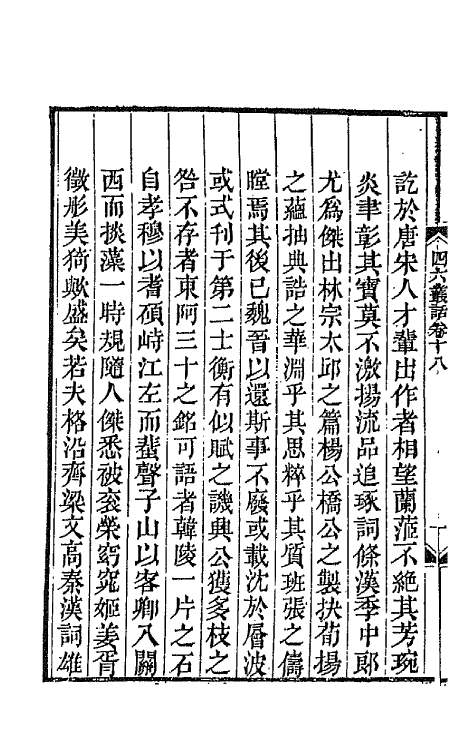 四六叢話卷十八
訖於唐宋人才輩出作者相望蘭茝不絕其芳琬
炎聿彰其寶莫不激揚流品追琢詞條漢季中郎
尤爲傑出林宗太邱之篇楊公橋公之製抉荀揚
之蘊抽典誥之華淵乎其思粹乎其質班張之儔
瞠焉其後已魏晉以還斯事不廢或載沈於層波
或式刊于第二士衡有似賦之譏興公獲多枝之
咎不存者東阿三十之銘可語者韓陵一片之石
自孝穆以耆碩峙江左而蜚聲子山以客卿入關
西而掞藻一時規隨人傑悉被袞榮窈窕姬姜胥
徵彤美猗歟盛矣若夫格沿齊梁文高秦漢詞雄